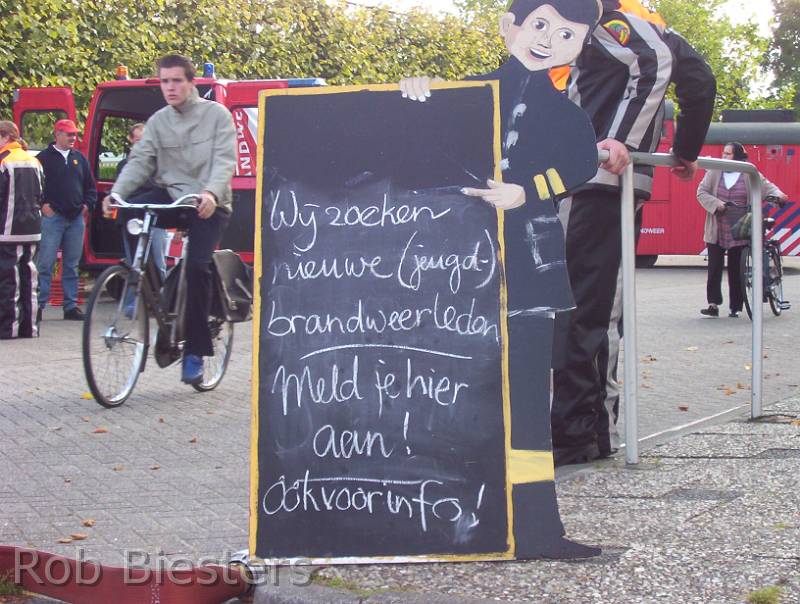 Wij zoeken
nieuwe (jeugd-)
brandweerleden
Meld je hier
aan!
óók voor info!
Rob Biesters